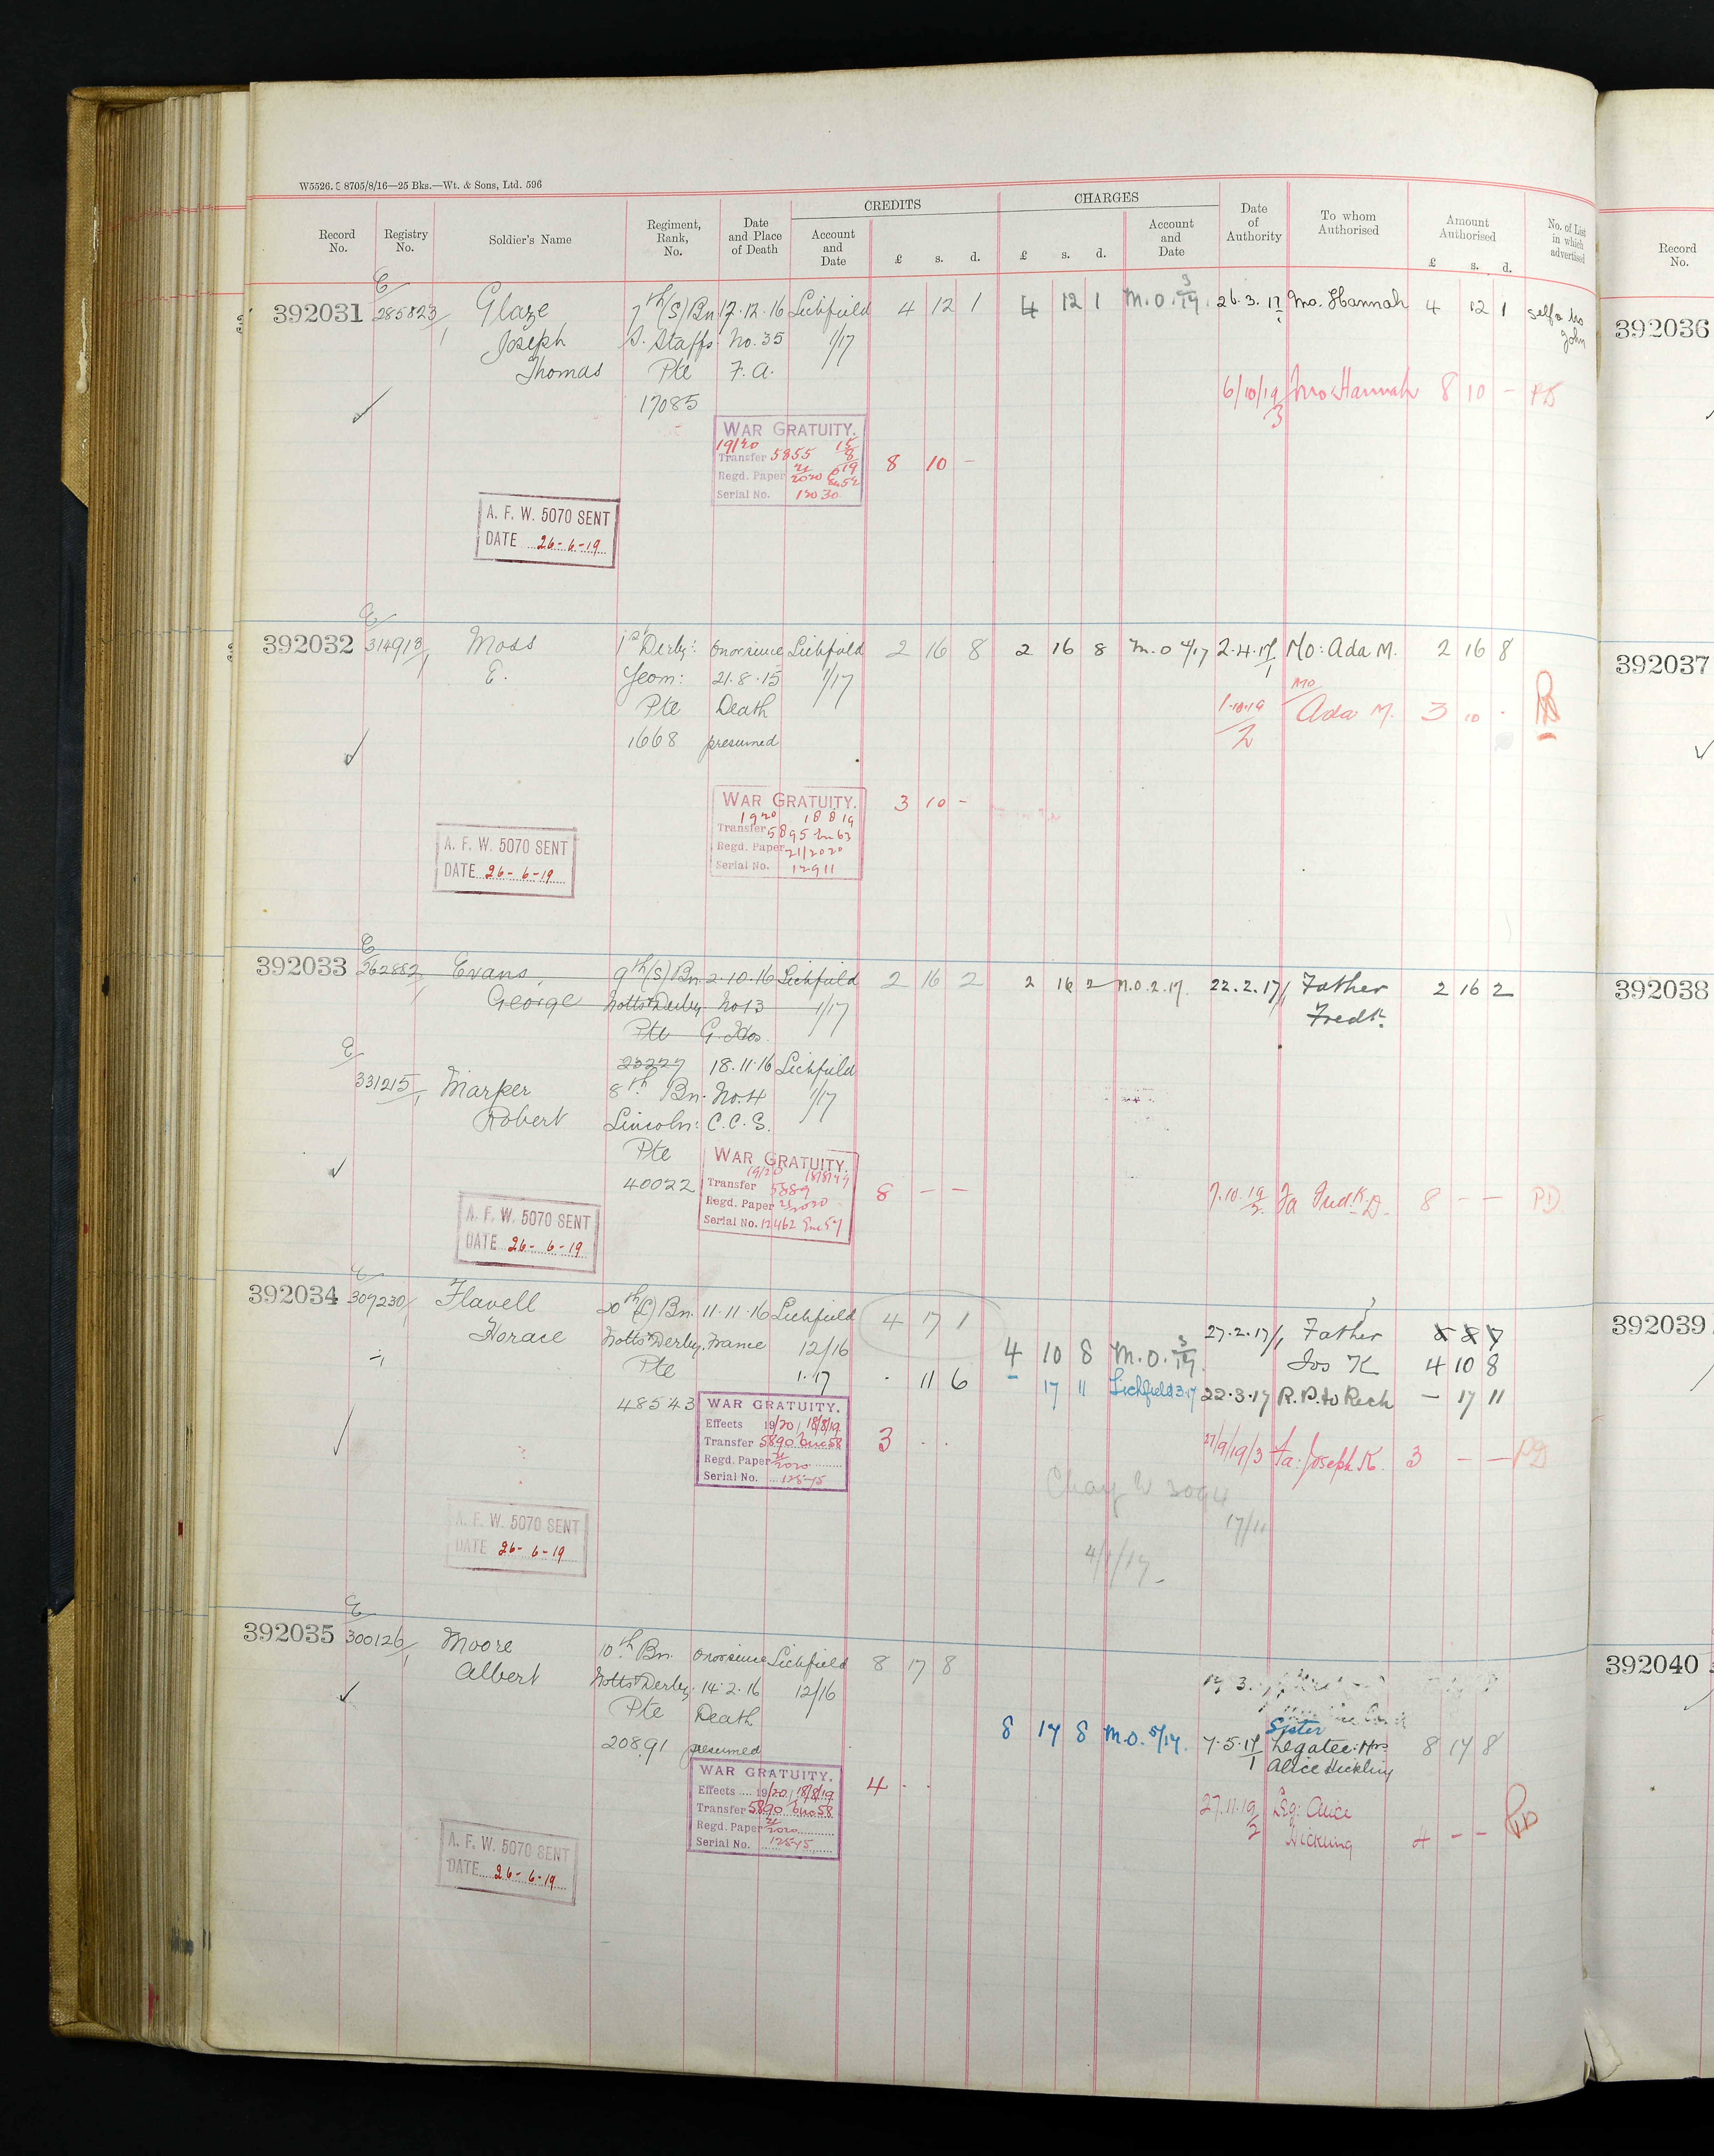 W5526. 8705/8/16—25 Bks.—Wt. & Sons, Ltd. 596
Record No. Registry No. Soldier's Name Regiment, Rank, No. Date and Place of Death CREDITS Account and Date £ s. d. CHARGES £ s. d. Account and Date Date of Authority To whom Authorised Amount Authorised £ s. d. No. of List in which advertised
392031 E 285823/1 Glaze 7th (S) Bn 17.12.16 Lichfield 4 12 1 4 12 1 M.O. 3/17. 26.3.17 Mo. Hannah 4 12 1 self & bro
Joseph S. Staffs. No. 35 1/17 John
Thomas Pte F. A.
17085 6/10/19 3 Mo Hannah 8 10 -
WAR GRATUITY.
19/20
Transfer 5855 8 10 -
Regd. Paper 21/2020
Serial No. 12030
A. F. W. 5070 SENT
DATE 26-6-19
392032 E 314913/1 Moss 1st Derby: On or since Lichfield 2 16 8 2 16 8 M.O 4/17 2.4.17/1 Mo: Ada M. 2 16 8
E. Yeom: 21.8.15 1/17
Pte Death 1.10.19/2 Mo Ada M. 3 10 -
1668 presumed
WAR GRATUITY. 3 10 -
1920 18 8 19
Transfer 5895 Enc 63
Regd. Paper 21/2020
Serial No. 12911
A. F. W. 5070 SENT
DATE 26-6-19
392033 E 262882/1 Evans, 9th (S) Bn. 2.10.16 Lichfield 2 16 2 2 16 2 M.O. 2.17. 22.2.17/1 Father 2 16 2
George Notts & Derby. No 13 1/17 Fredk.
Pte G. Hos.
23227 18.11.16 Lichfield
E 331215/1 Marper 8th Bn. No. 4 1/17
Robert Lincoln: C.C.S.
Pte
40022
WAR GRATUITY.
19/20
Transfer 5889 8 - - 7.10.19/2 Fa Fredk. D. 8 - - PD
Regd. Paper 21/2020
Serial No. 12462 Enc 57
A. F. W. 5070 SENT
DATE 26-6-19
392034 E 309230/1 Flavell 20th (L) Bn. 11.11.16 Lichfield 4 17 1 27.2.17/1 Father 5 8 7
Horace Notts & Derby. France 12/16 4 10 8 M.O. 3/17. Jos K 4 10 8
Pte 1.17 . 11 6 - 17 11 Lichfield 3.17 22.3.17 R.P. to Rech - 17 11
48543
WAR GRATUITY.
Effects 19/20 18/8/19
Transfer 5890 Enc 58 3 . . 27/9/19/3 Fa: Joseph K. 3 - - PD
Regd. Paper 21/2020
Serial No. 12575
17/11
4/1/17
A. F. W. 5070 SENT
DATE 26-6-19
392035 E 300126/1 Moore 10th Bn. On or since Lichfield 8 17 8
Albert Notts & Derby. 14.2.16 12/16
Pte Death 8 17 8 M.O. 5/17. 7.5.17/1 Sister
20891 presumed Legatee: Mrs 8 17 8
Alice Hickling
WAR GRATUITY.
Effects 19/20 18/8/19 4 . .
Transfer 5890 Enc 58 27.11.19/2 Leg: Alice
Regd. Paper 21/2020 Hickling 4 - -
Serial No. 12545
A. F. W. 5070 SENT
DATE 26-6-19
Record No.
392036
392037
392038
392039
392040